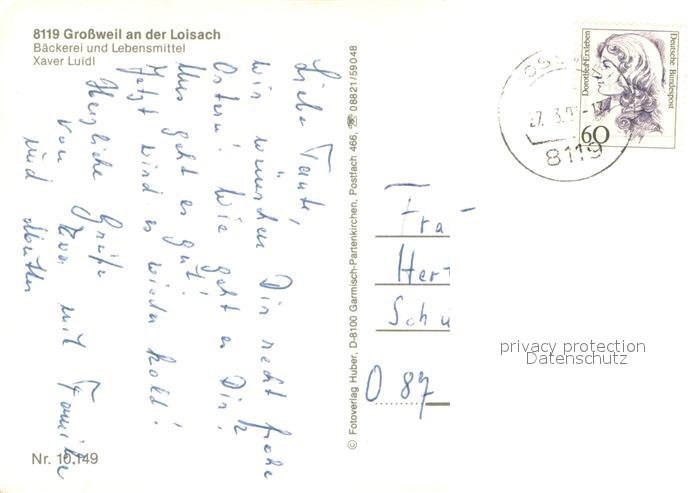 8119 Großweil an der Loisach
Bäckerei und Lebensmittel
Xaver Luidl
Liebe Tante,
wir wünschen Dir recht frohe
Ostern! Wie geht es Dir?
Uns geht es gut!
Jetzt wird es wieder kalt!
Herzliche Grüße
von mit Familie
und Mutter
Nr. 10.149
© Fotoverlag Huber, D-8100 Garmisch-Partenkirchen, Postfach 466, ☎ 08821/59048
Dorothea Erxleben
Deutsche Bundespost
60
8119
Fra
Her
Schü
O 87
privacy protection
Datenschutz